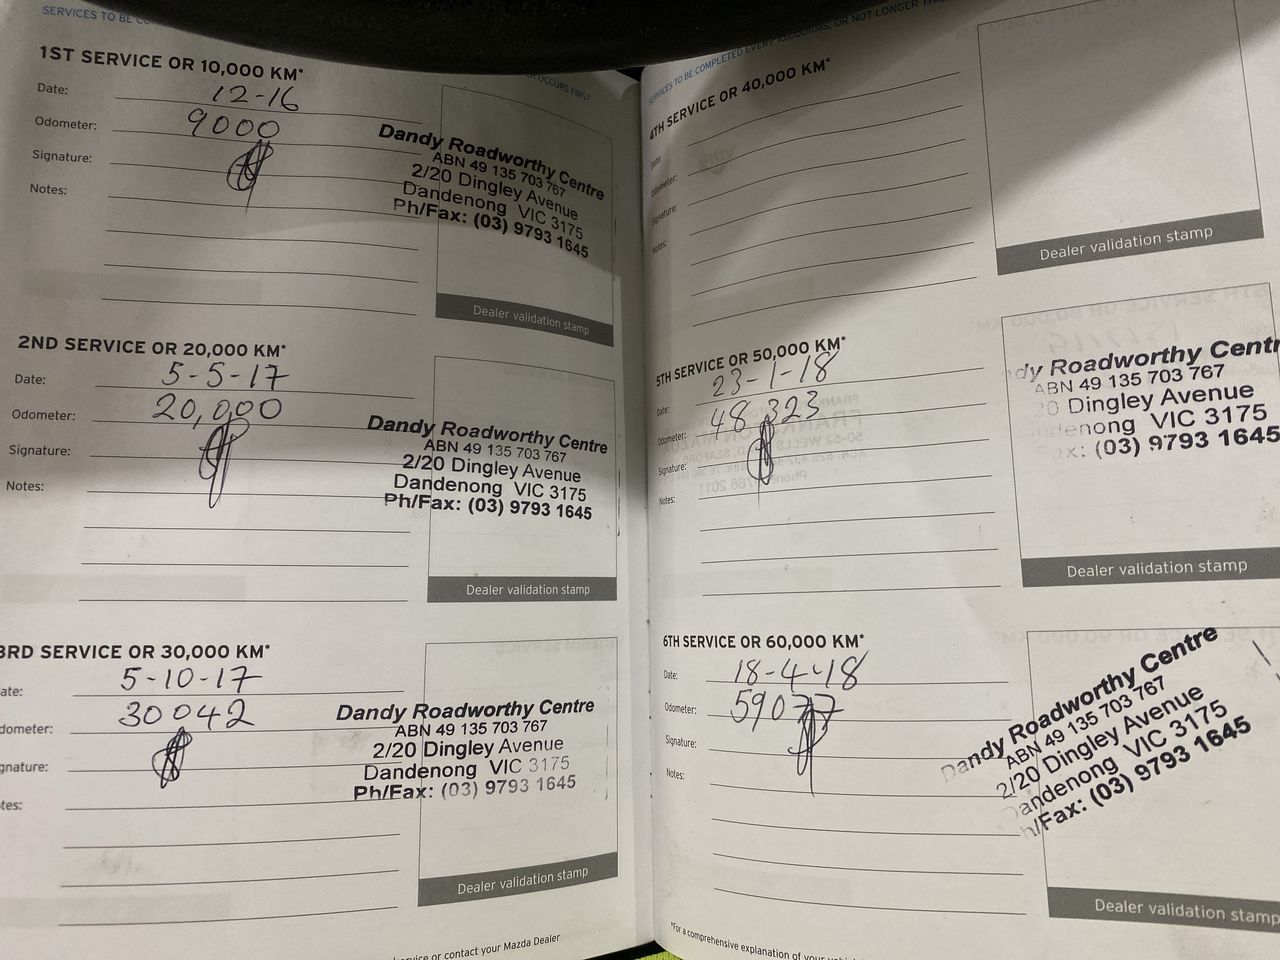 SERVICES TO BE
OCCURS FIRST
1ST SERVICE OR 10,000 KM*
Date: 12-16
Odometer: 9000
Signature:
Notes:
Dandy Roadworthy Centre
ABN 49 135 703 767
2/20 Dingley Avenue
Dandenong VIC 3175
Ph/Fax: (03) 9793 1645
Dealer validation stamp
2ND SERVICE OR 20,000 KM*
Date: 5-5-17
Odometer: 20,000
Signature:
Notes:
Dandy Roadworthy Centre
ABN 49 135 703 767
2/20 Dingley Avenue
Dandenong VIC 3175
Ph/Fax: (03) 9793 1645
Dealer validation stamp
3RD SERVICE OR 30,000 KM*
ate: 5-10-17
dometer: 30042
gnature:
tes:
Dandy Roadworthy Centre
ABN 49 135 703 767
2/20 Dingley Avenue
Dandenong VIC 3175
Ph/Fax: (03) 9793 1645
Dealer validation stamp
ervice or contact your Mazda Dealer
SERVICES TO BE COMPLETED EVERY 10,000KMS, OR NOT LONGER
4TH SERVICE OR 40,000 KM*
Date:
Odometer:
Signature:
Notes:
Dealer validation stamp
5TH SERVICE OR 50,000 KM*
Date: 23-1-18
Odometer: 48,323
Signature:
Notes:
ndy Roadworthy Centr
ABN 49 135 703 767
20 Dingley Avenue
ndenong VIC 3175
Fax: (03) 9793 1645
Dealer validation stamp
6TH SERVICE OR 60,000 KM*
Date: 18-4-18
Odometer: 59077
Signature:
Notes:
Dandy Roadworthy Centre
ABN 49 135 703 767
2/20 Dingley Avenue
Dandenong VIC 3175
h/Fax: (03) 9793 1645
Dealer validation stamp
*For a comprehensive explanation of your